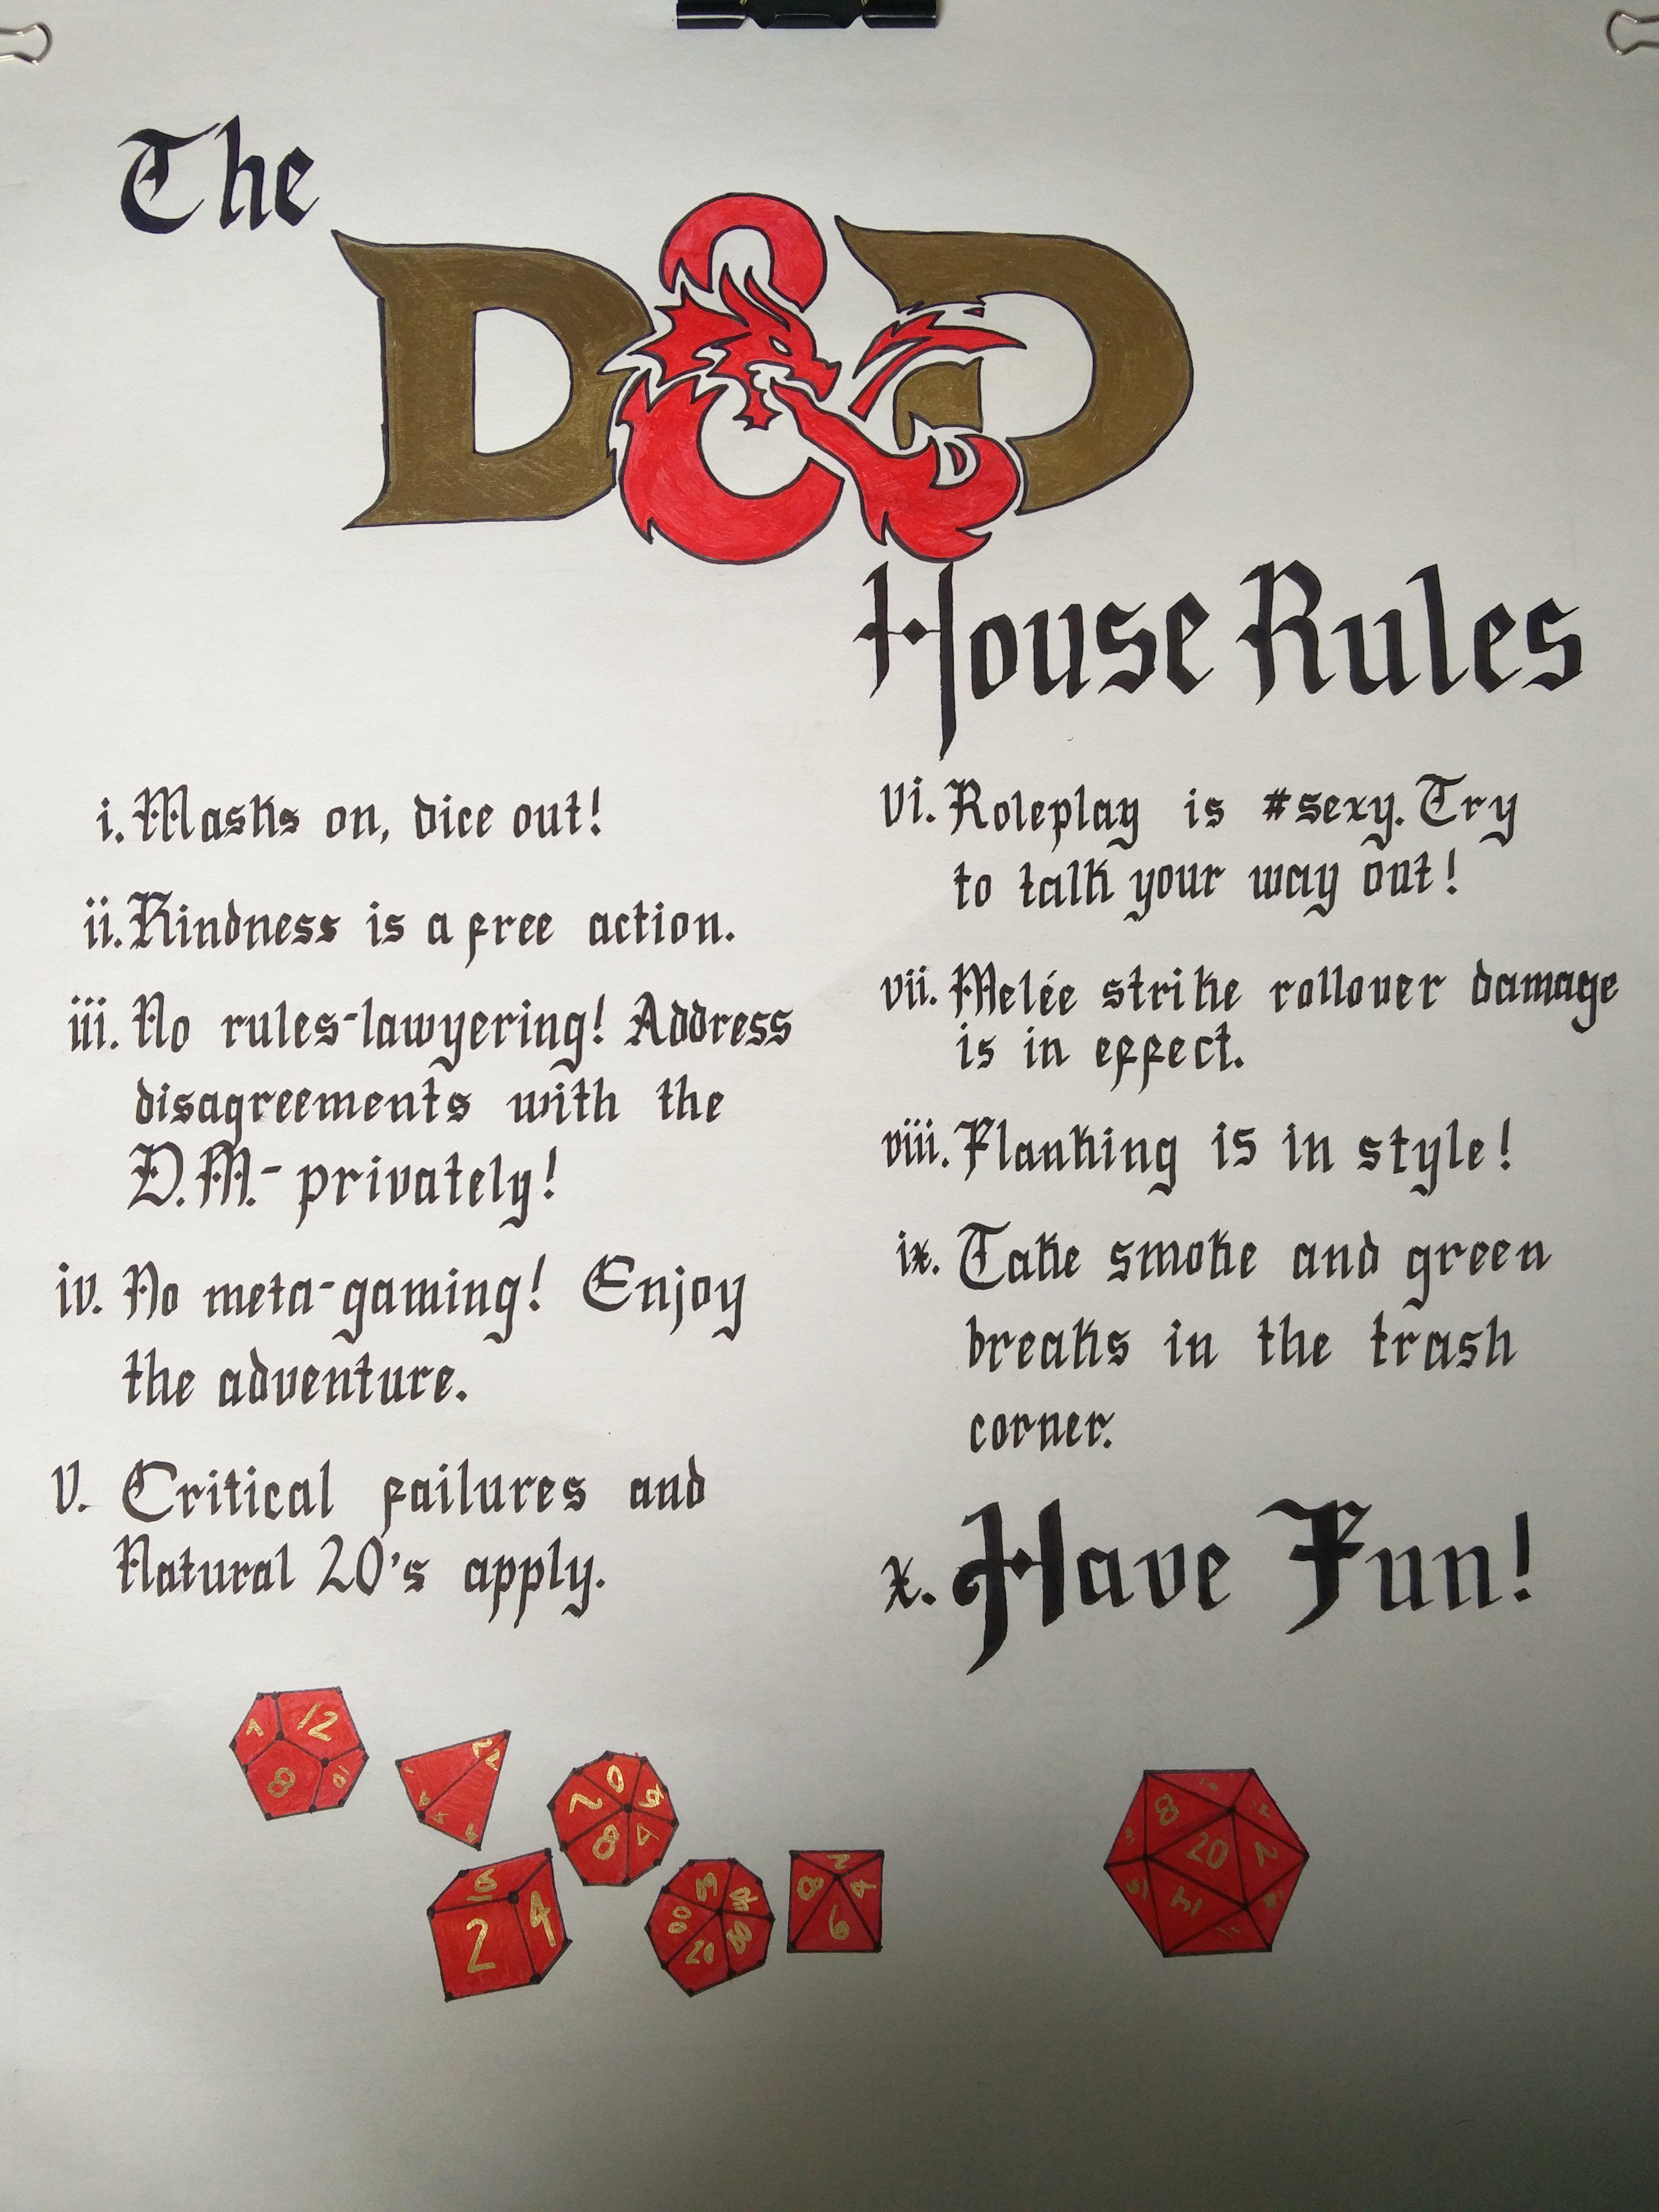 The
D&D
House Rules
i. Masks on, dice out!
ii. Kindness is a free action.
iii. No rules-lawyering! Address
disagreements with the
D.M.- privately!
iv. No meta-gaming! Enjoy
the adventure.
v. Critical failures and
Natural 20's apply.
vi. Roleplay is #sexy. Try
to talk your way out!
vii. Melée strike rollover damage
is in effect.
viii. Flanking is in style!
ix. Take smoke and green
breaks in the trash
corner.
x. Have Fun!
12
8
2
4
6
8
20